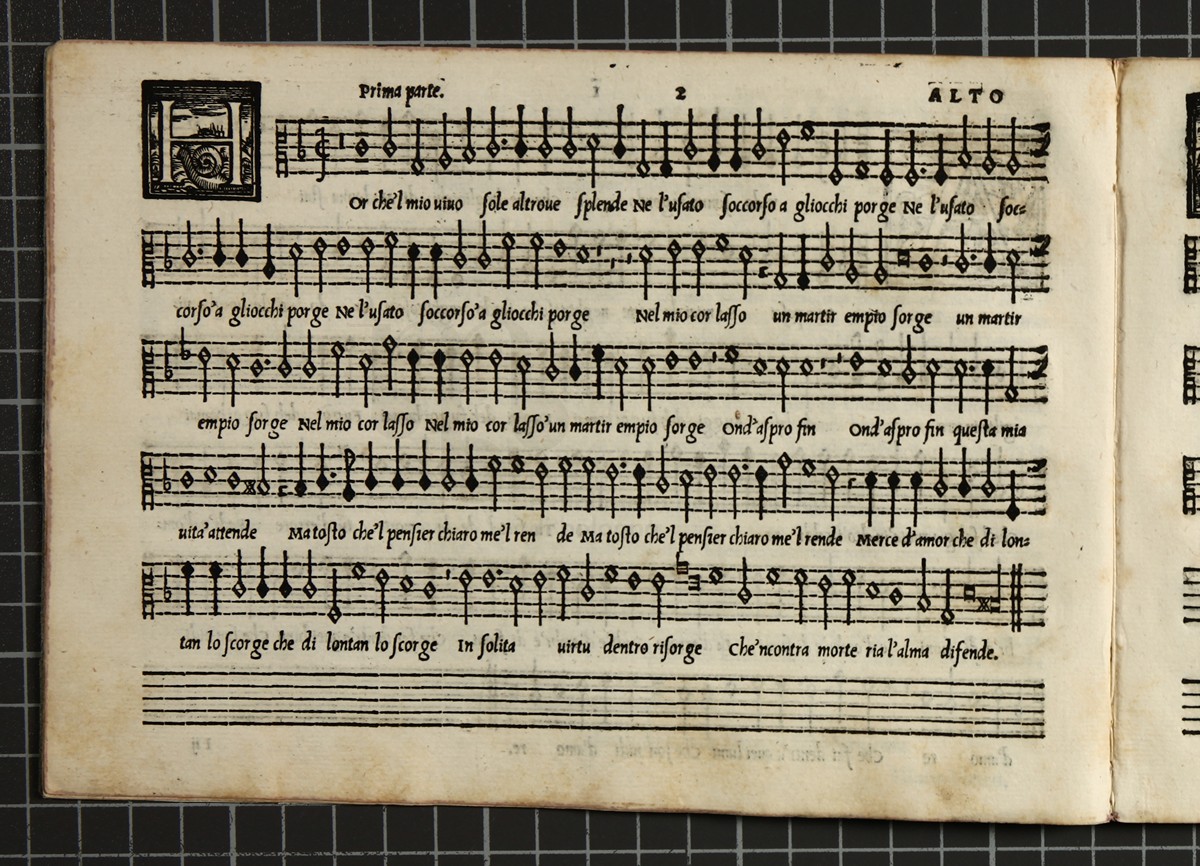 Prima parte. 2 ALTO
HOr che'l mio uiuo sole altroue splende Ne l'usato soccorso a gliocchi porge Ne l'usato soc=
corso'a gliocchi porge Ne l'usato soccorso'a gliocchi porge Nel mio cor lasso un martir empio sorge un martir
empio sorge Nel mio cor lasso Nel mio cor lasso'un martir empio sorge Ond'aspro fin Ond'aspro fin questa mia
uita'attende Ma tosto che'l pensier chiaro me'l ren de Ma tosto che'l pensier chiaro me'l rende Merce d'amor che di lon=
tan lo scorge che di lontan lo scorge In solita uirtu dentro risorge Che'ncontra morte ria l'alma difende.